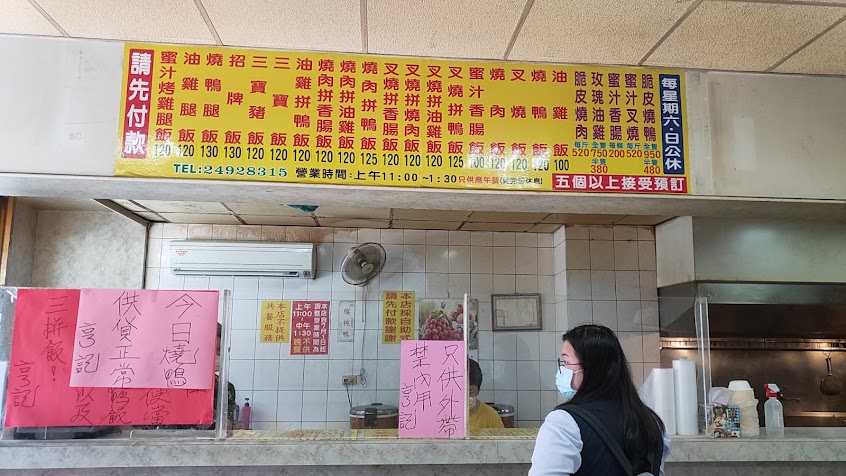 請先付款
蜜汁烤雞腿飯 120
油雞腿飯 120
燒鴨腿飯 130
招牌飯
三寶豬飯
三寶飯
油雞拼鴨飯 120
燒肉拼香腸飯 120
燒肉拼油雞飯 120
燒肉拼鴨飯 125
叉燒拼香腸飯 120
叉燒拼油雞飯 120
叉燒拼鴨飯 125
蜜汁香腸飯 100
燒肉飯 120
叉燒飯 120
燒鴨飯 120
油雞飯 100
脆皮燒肉 每斤 520
玫瑰油雞 全隻 750 半隻 380
蜜汁香腸 200
蜜汁叉燒 每斤 520
脆皮燒鴨 全隻 950 半隻 480
每星期六·日公休
TEL:24928315 營業時間:上午11:00~1:30 只供應午餐
五個以上接受預訂
三拼飯!
亨記
今日燒鴨
供貨正常
亨記
便當
鴨飯
以及
本店不提供
共餐服務
調整營業時間為
上午11:00
中午1:30
晚不供
本店採自助式
請先付款謝謝
只供外帶
禁內用
亨記